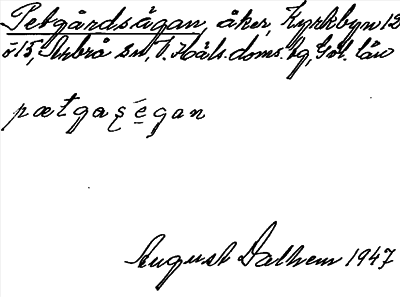 Petgårdsägan, åker, Kyrkbyn 12
o 15, Arbrå sn, V. Häls. doms. tg, Gvl. län
pætgaṣẹgan
August Dalhem 1947